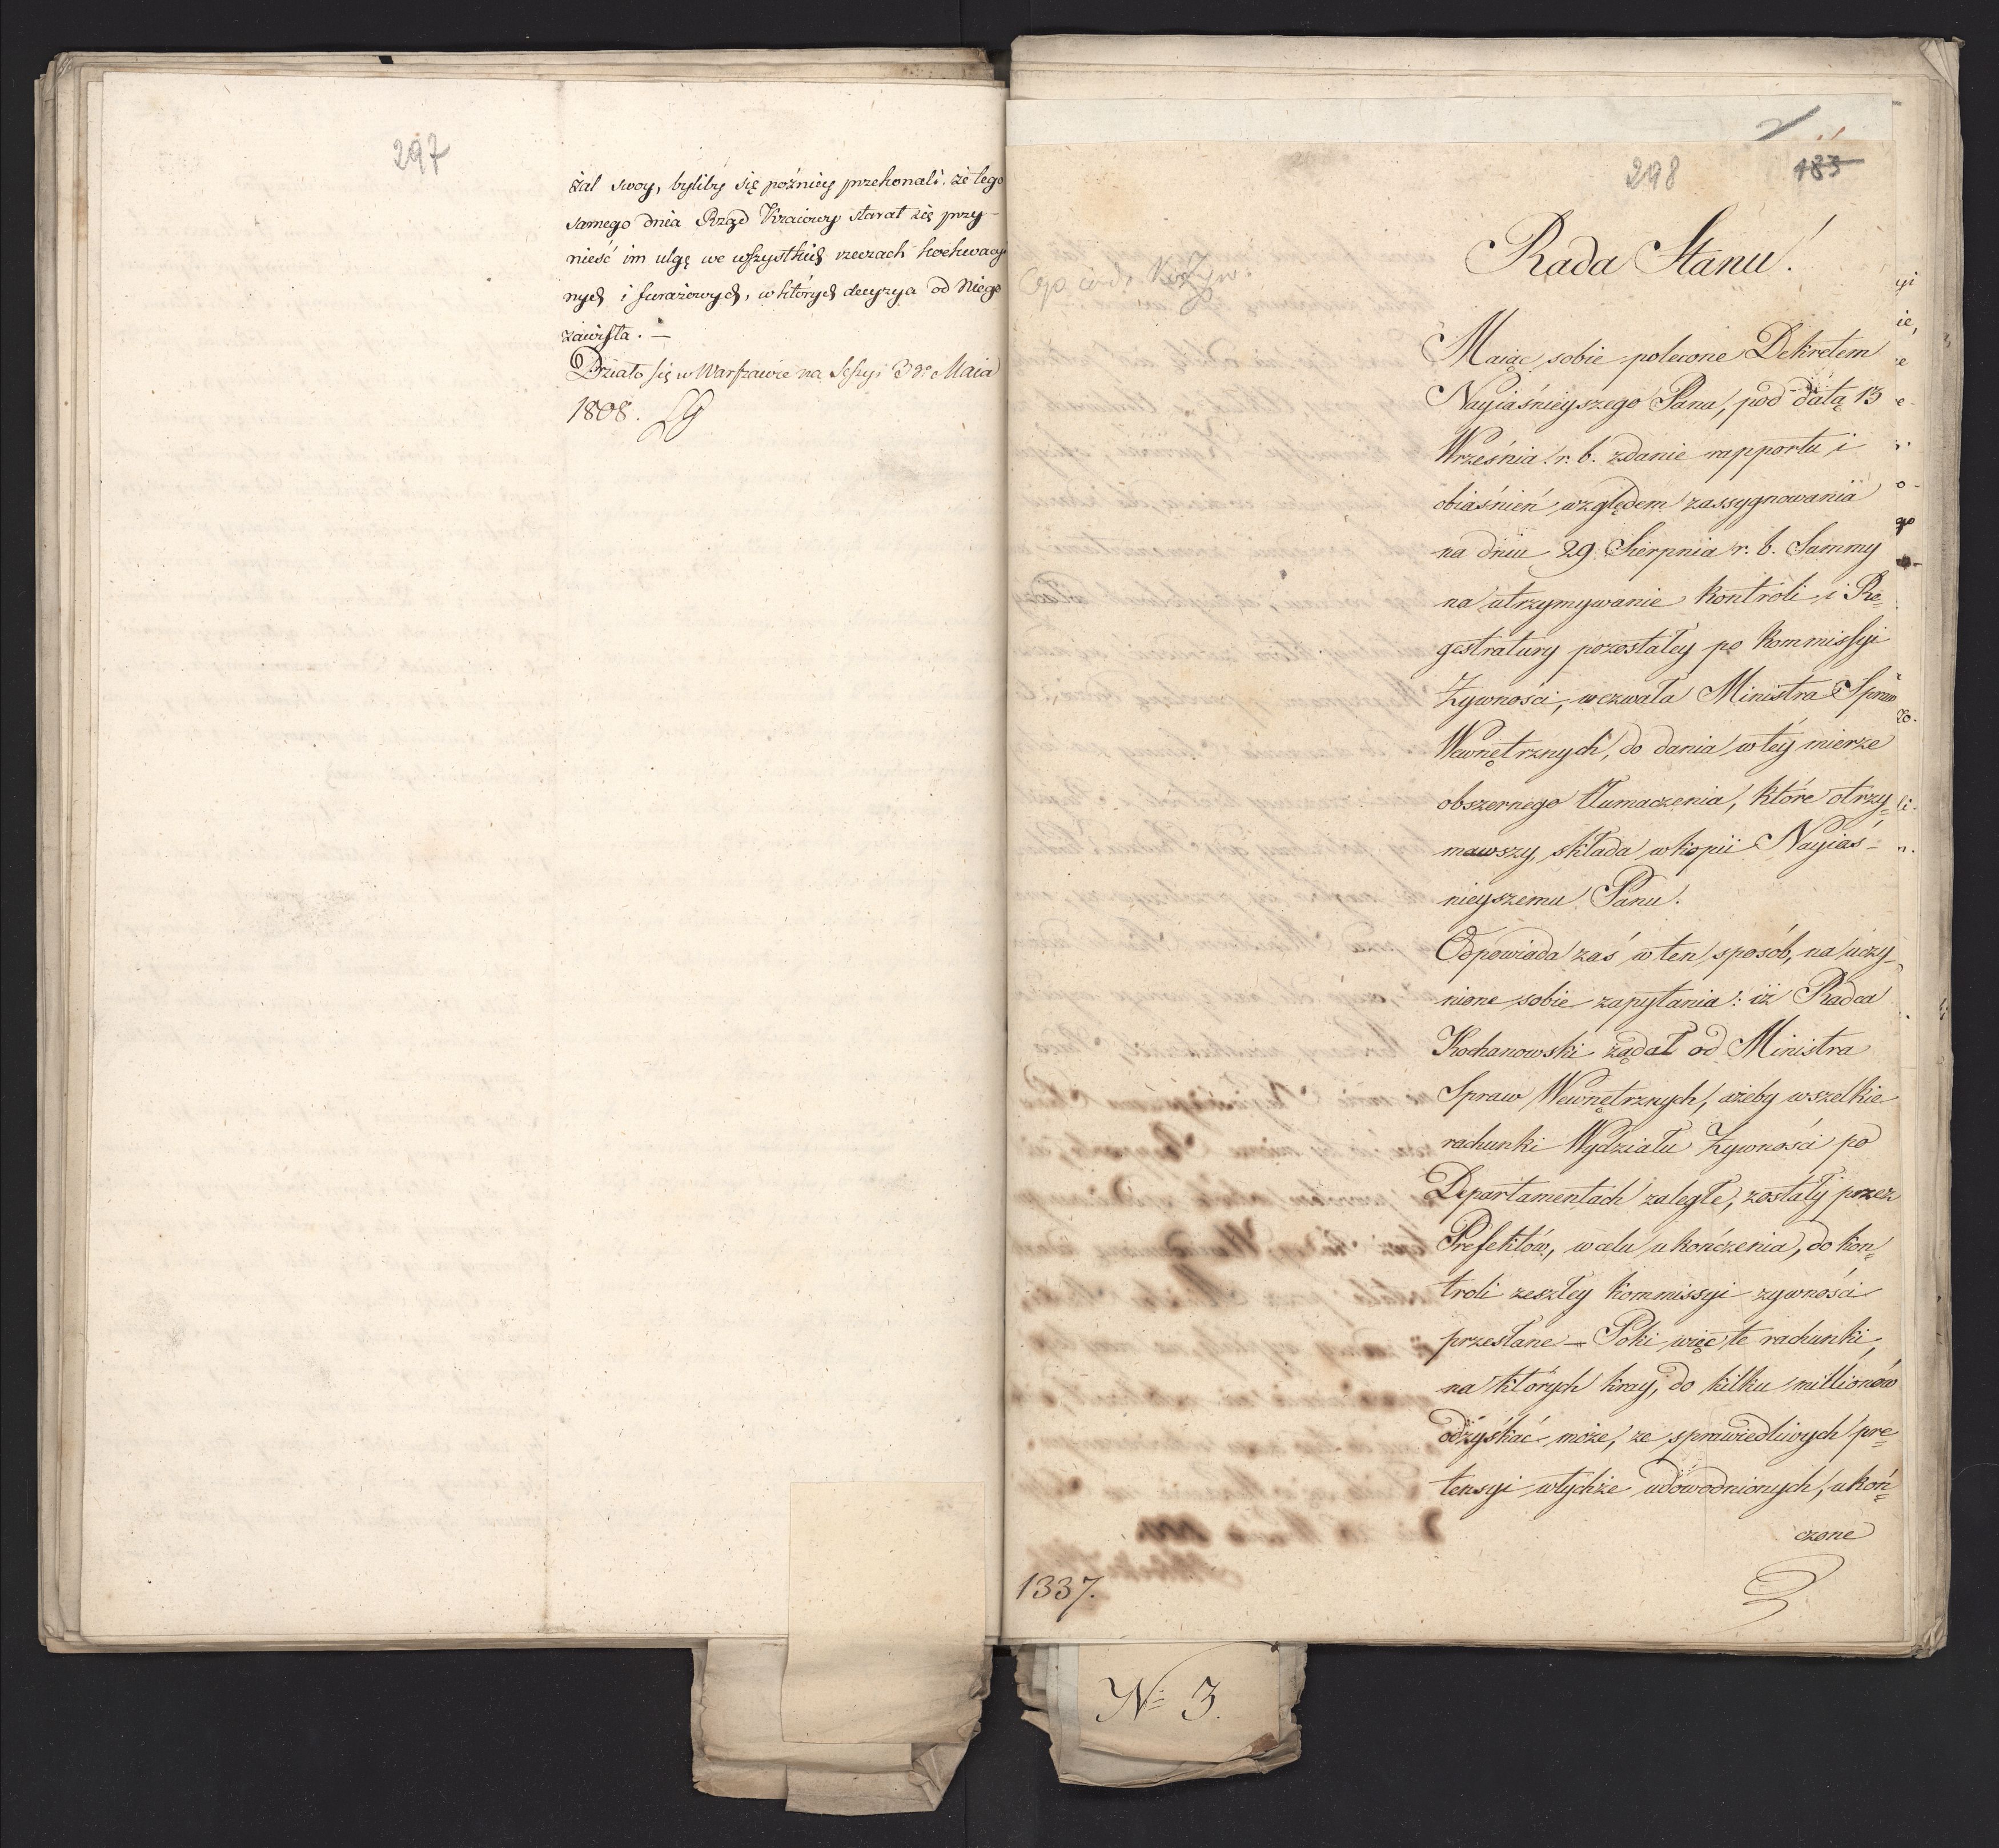 297
żal swoy, byliby się poźniey przekonali, że tego
samego dnia Rząd Kraiowy starał się przy-
nieść im ulgę we wszystkich rzeczach
nych i furażowych, w których decyzya od Niego
zawisła. —
Działo się w Warszawie na Sessyi 3go Maia
1808.
298 183
Rada Stanu.
Maiąc sobie polecone Dekretem
Nayiaśnieyszego Pana, pod datą 13
Września r. b. zdanie rapportu i
obiaśnień względem zassygnowania
na dniu 29 Sierpnia r. b. Summy
na utrzymywanie Kontroli i Re=
gestratury pozostałey po Kommissyi
Żywnosci, wezwała Ministra Spraw
Wewnętrznych, do dania w tey mierze
obszernego tłumaczenia, które otrzy=
mawszy, składa w kopii Nayiaś-
nieyszemu Panu.
Odpowiada zaś w ten sposób, na uczy-
nione sobie zapytania: iż Radca
Kochanowski żądał od Ministra
Spraw Wewnętrznych, ażeby wszelkie
rachunki Wydziału Żywności po
Departamentach zaległe, zostały przez
Prefektów, w celu ukończenia, do kon=
troli zeszłey Kommissyi żywności
przesłane — Poki więc te rachunki,
na których kray, do kilku millionów
odzyskać może, ze sprawiedliwych pre=
tensyi w tychże udowodnionych, ukoń=
czone
1337.
Nº 3.